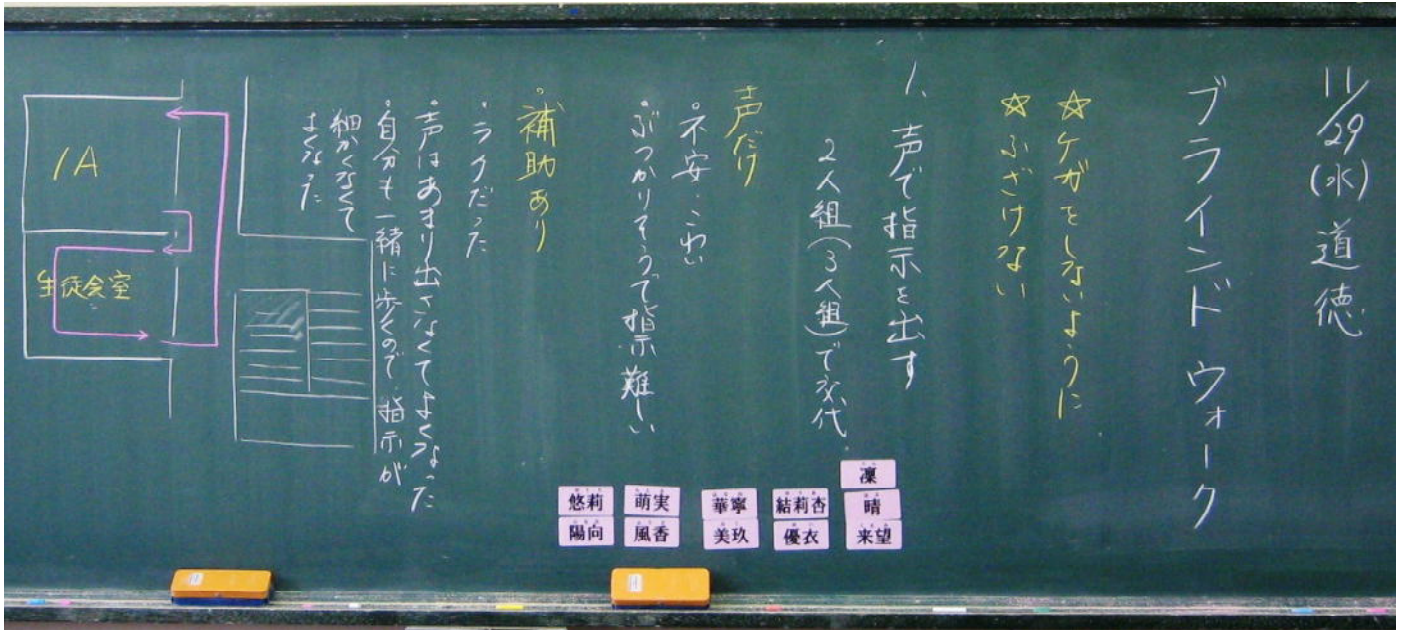 11/29(水)道徳
ブラインドウォーク
☆ケガをしないように
☆ふざけない
1、声で指示を出す
2人組(3人組)で交代
声だけ
・不安・こわい
ぶつかりそうで指示難しい
・補助あり
・ラクだった
・声はあまり出さなくてよくなった
・自分も一緒に歩くので、指示が
細かくなくて
よくなった
凜
晴
来望
結莉杏
優衣
華寧
美玖
萌実
風香
悠莉
陽向
1A
生徒会室